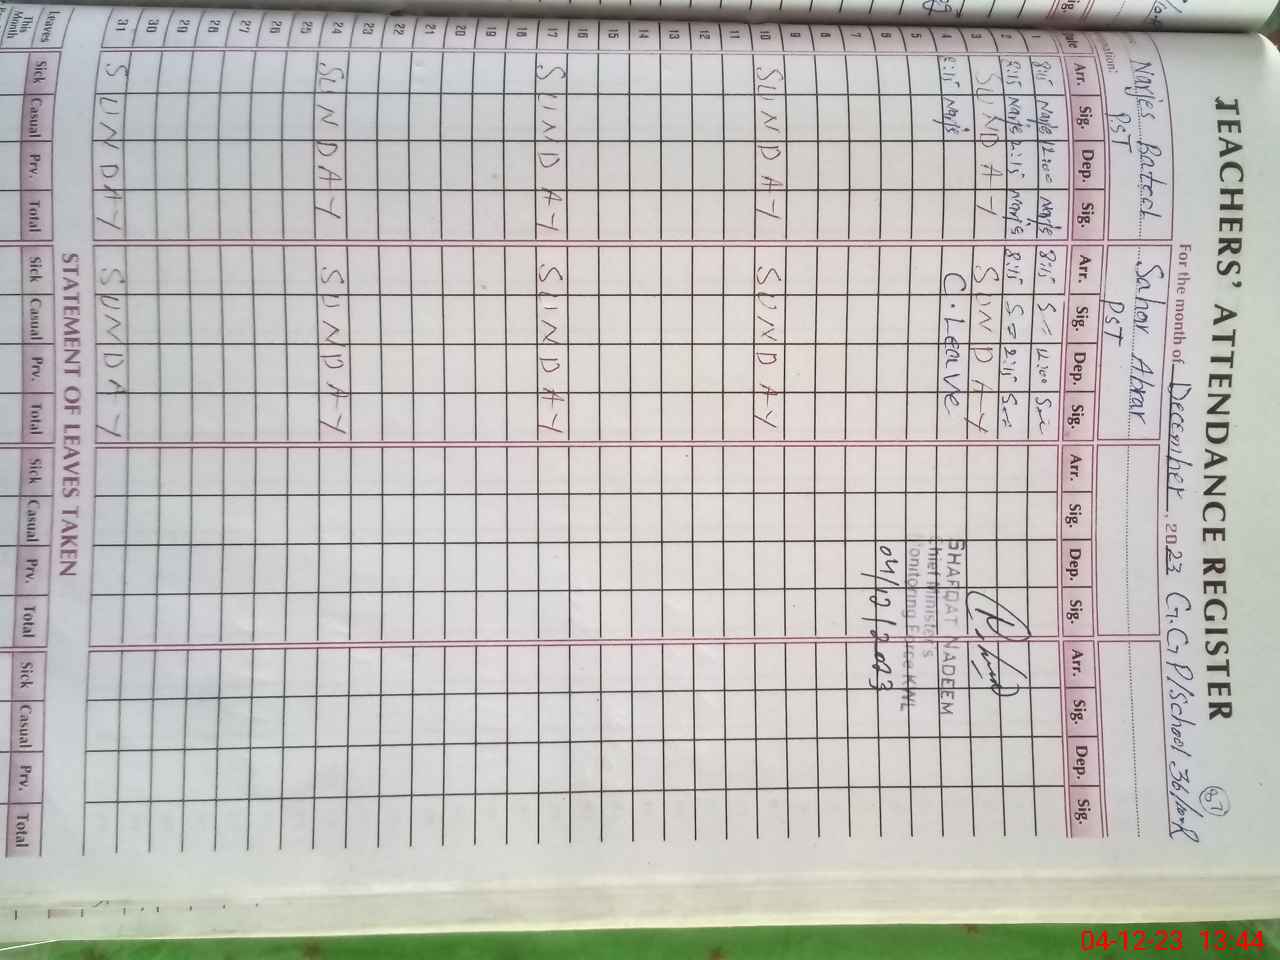 TEACHERS' ATTENDANCE REGISTER
87
For the month of December 2023 G.G.P/School 36/10-R
Narjes Batool Sahar Abrar
PST PST
Arr. Sig. Dep. Sig. Arr. Sig. Dep. Sig. Arr. Sig. Dep. Sig. Arr. Sig. Dep. Sig.
1 8:15 Narjs 12:00 Narjs 8:15 12:00
2 8:15 Narjs 2:15 Narjs 8:15 2:15
3 SUNDAY SUNDAY
4 8:15 Narjs C. Leave SHAFQAT NADEEM
Chief Minister's
5 Monitoring Force KWL
6 04/12/2023
7
8
9
10 SUNDAY SUNDAY
11
12
13
14
15
16
17 SUNDAY SUNDAY
18
19
20
21
22
23
24 SUNDAY SUNDAY
25
26
27
28
29
30
31 SUNDAY SUNDAY
STATEMENT OF LEAVES TAKEN
Leaves Sick Casual Prv. Total Sick Casual Prv. Total Sick Casual Prv. Total Sick Casual Prv. Total
This
Month
04-12-23 13:44